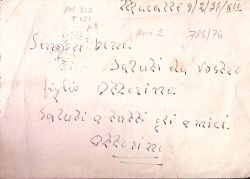 PH 210
T 151
p2
Macallè 9/2/36/XIV
Ann 1
786/76
Sono bene.
Saluti da vostro
figlio Ottorino.
Saluti a tutti gli amici.
Ottorino